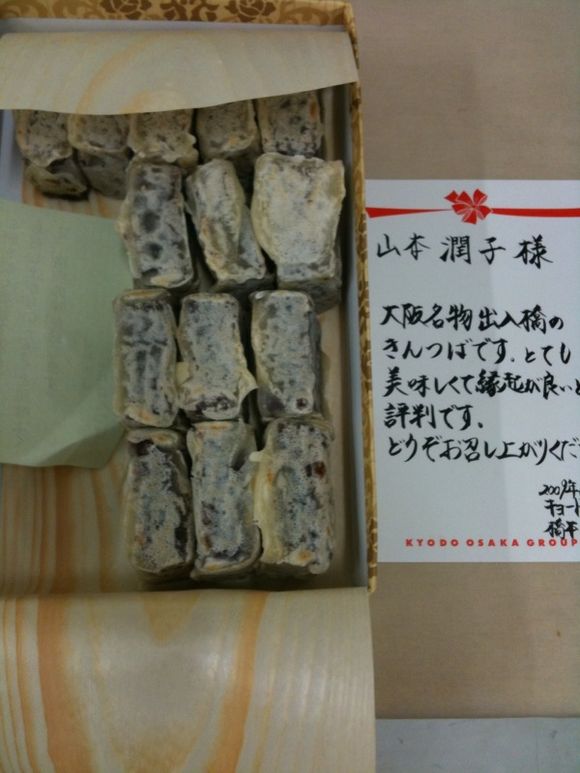 山本潤子様
大阪名物出入橋の
きんつばです。とても
美味しくて縁起が良いと
評判です。
どうぞお召し上がりくだ
2009年
キョード
橋本
KYODO OSAKA GROUP